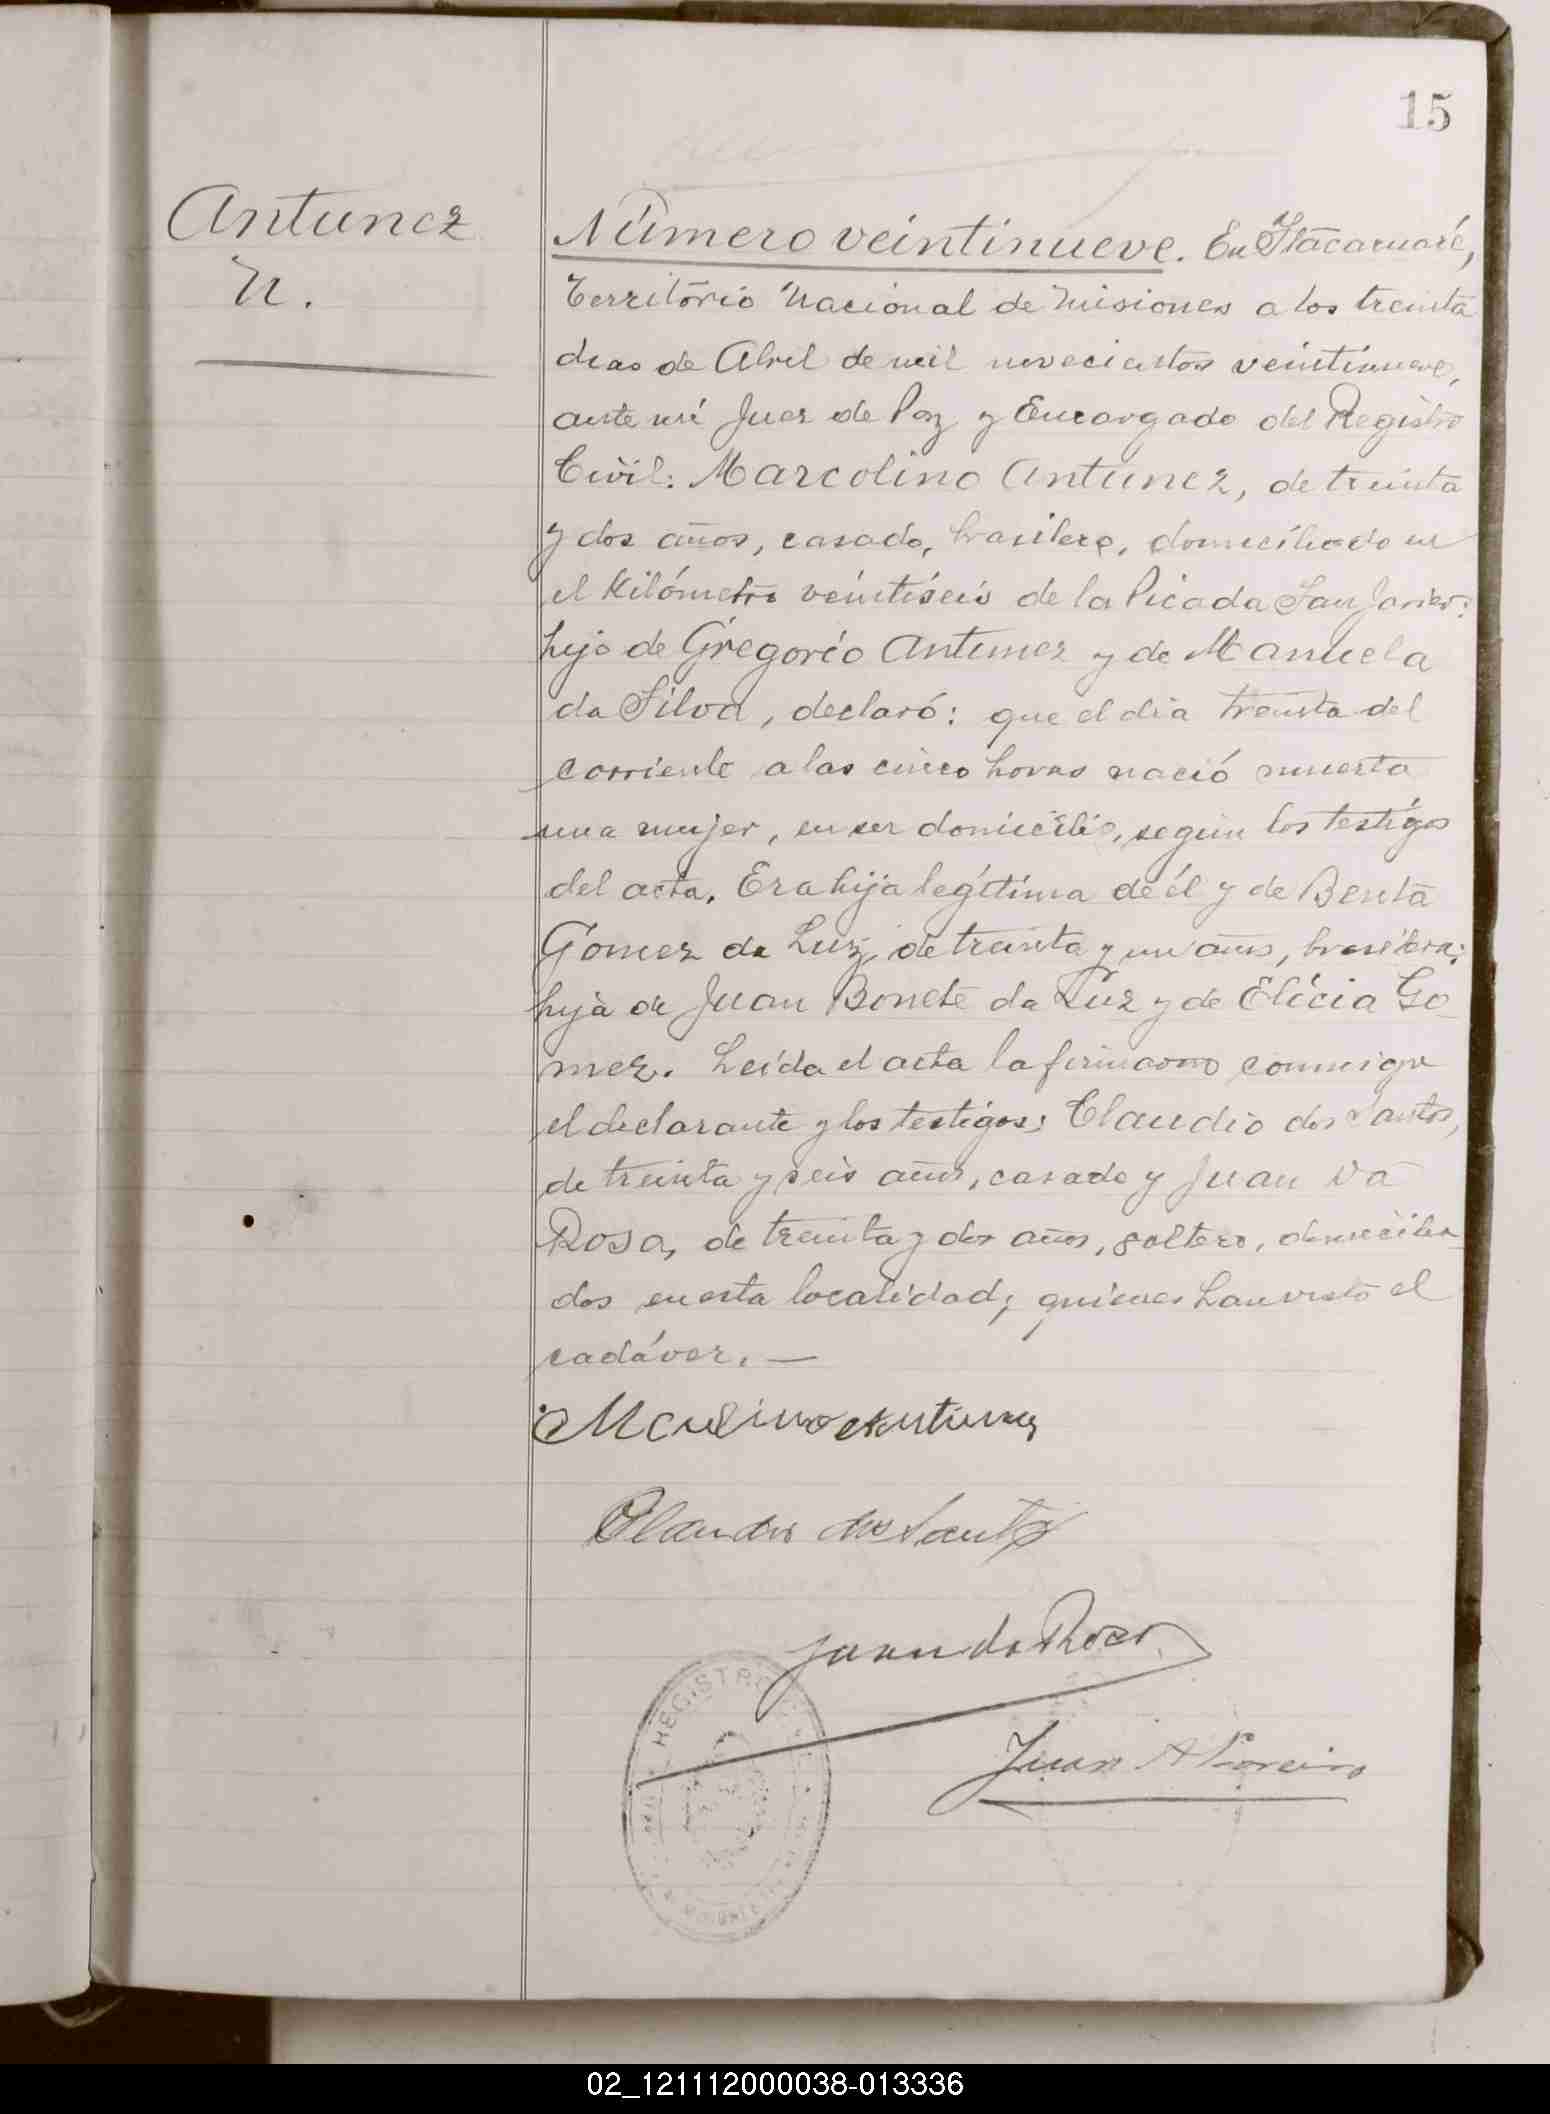 15
Antunez
N.
Número veintinueve. En Itacaruaré,
Territorio Nacional de Misiones a los treinta
dias de Abril de mil novecientos veintinueve,
ante mí Juez de Paz y Encargado del Registro
Civil: Marcolino Antunez, de treinta
y dos años, casado, brasilero, domiciliado en
el kilómetro veintiseis de la Picada San Javier:
hijo de Gregorio Antunez y de Manuela
da Silva, declaró: que el dia treinta del
corriente a las cinco horas nació muerta
una mujer, en su domicilio, según los testigos
del acta. Era hija legítima de él y de Benta
Gomez da Luz, de treinta y un años, brasilera;
hija de Juan Bonete da Luz y de Elicia Go-
mez. Leida el acta la firmaron conmigo
el declarante y los testigos: Claudio dos Santos,
de treinta y seis años, casado y Juan da
Rosa, de treinta y dos años, soltero, domicilia-
dos en esta localidad; quienes han visto el
cadáver. —
Antunez
Claudio dos Santos
Juan da Rosa
REGISTRO
Juan A
02_121112000038-013336